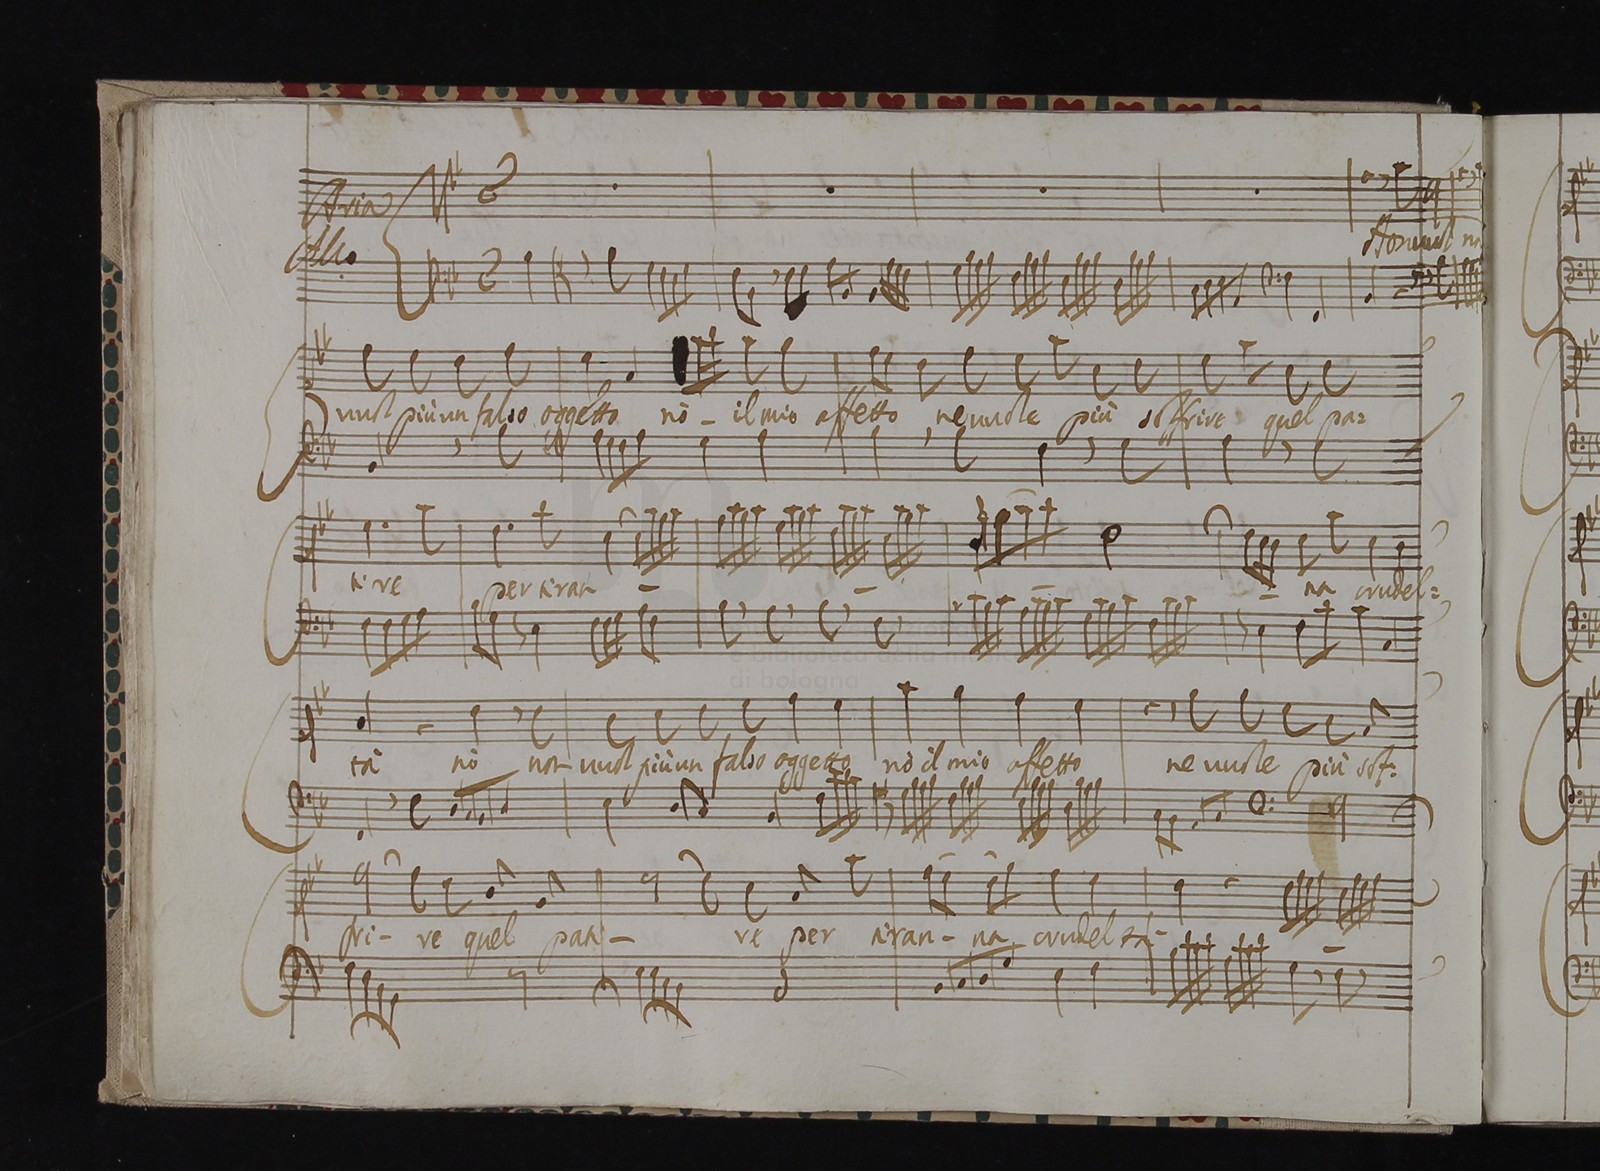 Aria
All.o
Non vuol no
vuol più un falso oggetto nò - il mio affetto ne vuole più soffrire quel pa=
tire per tiran - - - - na crudel=
tà nò non vuol più un falso oggetto nò il mio affetto ne vuole più sof=
fri- re quel pati - re per tiran- na crudel tà- -
museo internazionale
e biblioteca della musica
di bologna